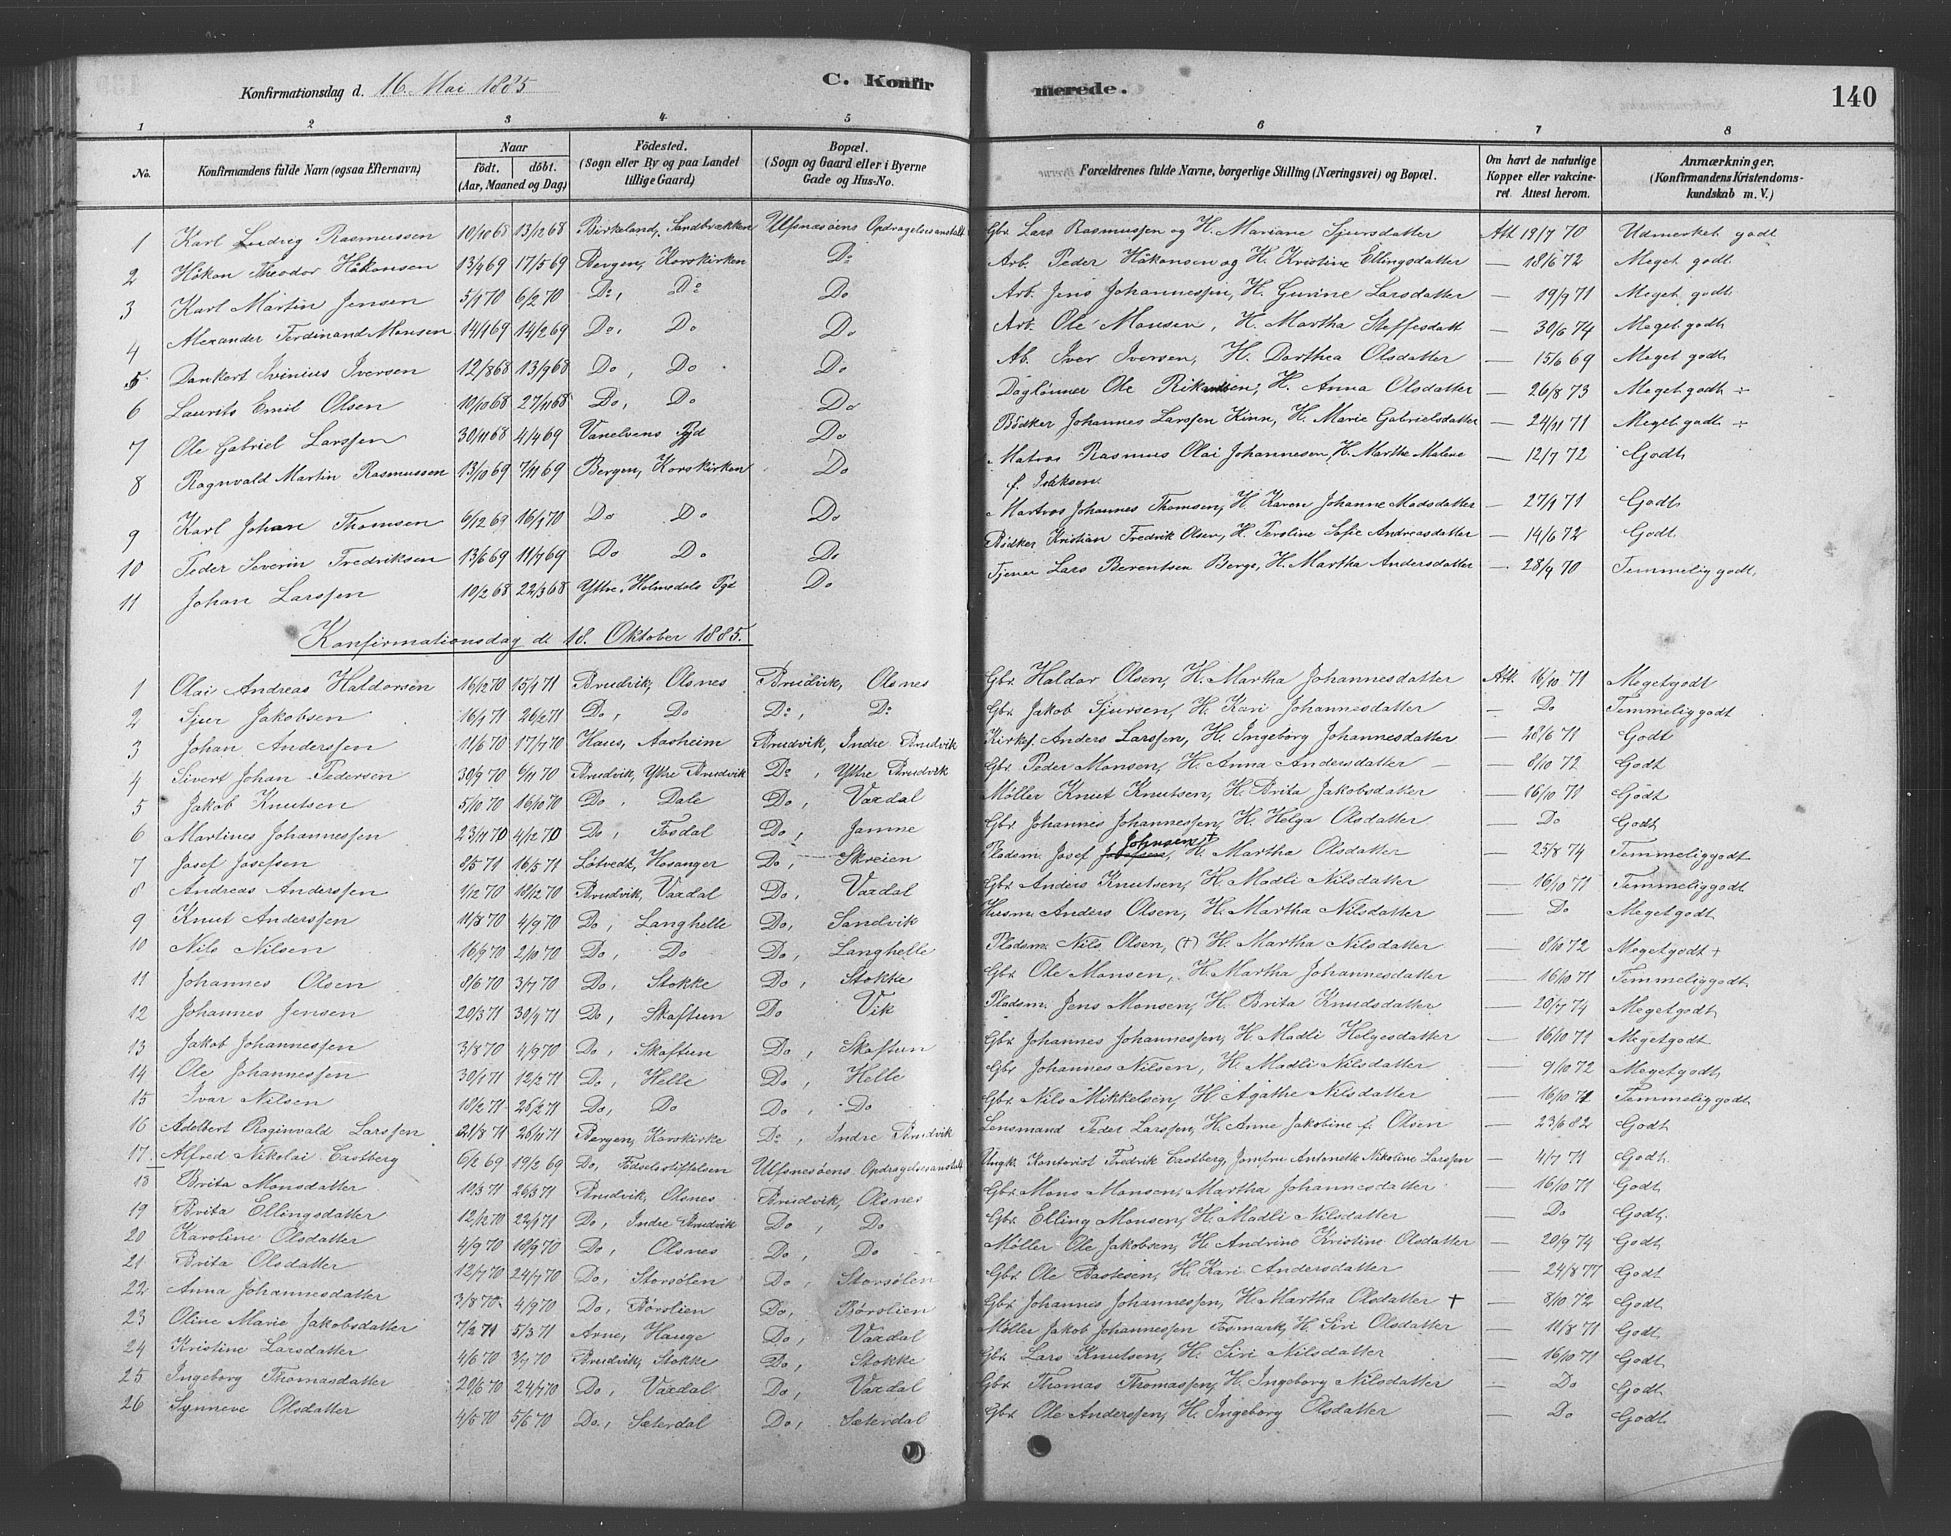 Konfirmationsdag d. 16. Mai 1885
C. Konfir
merede.
140
1 2 3 4 5 6 7 8
No. Konfirmandens fulde Navn (ogsaa Efternavn) Naar födt. döbt. (Aar, Maaned og Dag) Födested. (Sogn eller By og paa Landet tillige Gaard) Bopæl. (Sogn og Gaard eller i Byerne Gade og Hus-No. Forældrenes fulde Navne, borgerlige Stilling (Næringsvei) og Bopæl. Om havt de naturlige Kopper eller vakcineret. Attest herom. Anmærkninger. (Konfirmandens Kristendomskundskab m. V.)
1 Karl Ludvig Rasmussen 10/10 68 13/12 68 Birkeland, Sandbrækken Ulfsnæsöens Opdragelsesanstalt Gbr. Lars Rasmussen og H. Mariane Sjursdatter Att 19/7 70 Udmerket godt
2 Håkon Theodor Håkonsen 13/4 69 17/5 69 Bergen, Korskirken Do Arb. Peder Håkonsen og H. Kristine Ellingsdatter — 18/6 72 Meget godt
3 Karl Martin Jensen 5/1 70 6/2 70 Do, Do Do Arb. Jens Johannessen, H. Gurine Larsdatter — 19/9 71 Meget godt
4 Alexander Ferdinand Monsen 14/1 69 14/2 69 Do, Do Do Arb. Ole Monsen, H. Martha Steffesdatt — 30/6 74 Meget godt
5 Dankert Svinius Iversen 12/8 68 13/9 68 Do, Do Do Ab. Iver Iversen, H. Dorthea Olsdatter — 15/6 69 Meget godt
6 Laurits Emil Olsen 10/10 68 27/11 68 Do, Do Do Daglönner Ole H. Anna Olsdatter — 26/8 73 Meget godt ÷
7 Ole Gabriel Larssen 30/11 68 4/4 69 Vanelvens Pgd Do Bödker Johannes Larssen Kinn, H. Marie Gabrielsdatter — 24/11 71 Meget godt ÷
8 Ragnvald Martin Rasmussen 13/10 69 7/11 69 Bergen, Korskirken Do Matros Rasmus Olai Johannesen, H. Marthe Malene — 12/7 72 Godt
9 Karl Johan Thomsen 6/12 69 16/1 70 Do Do Do Martros Johannes Thomsen, H. Karen Johanne Madsdatter — 27/9 71 Godt
10 Peder Severin Fredriksen 13/6 69 11/7 69 Do Do Do Bödker Kristian Fredrik Olsen, H. Peroline Sofie Andreasdatter — 14/6 72 Godt
11 Johan Larssen 10/2 68 22/3 68 Yttre Holmedals Pgd Do Tjener Lars Berentsen Berge, H. Martha Andersdatter — 28/9 70 Temmelig godt,
Konfirmationsdag d. 18. Oktober 1885.
1 Olai Andreas Haldorsen 16/12 70 15/1 71 Brudvik, Olsnes Brudvik, Olsnes Gbr. Haldor Olsen, H. Martha Johannesdatter Att. 16/10 71 Meget godt
2 Sjur Jakobsen 16/1 71 26/2 71 Do, Do Do, Do Gbr. Jakob Sjursen, H. Kari Johannesdatter — Do Temmelig godt
3 Johan Anderssen 11/6 70 17/7 70 Haus, Aasheim Brudvik, Indre Brudvik Kirks. Anders Larssen, H. Ingeborg Johannesdatter — 28/6 71 Godt
4 Sivert Johan Pedersen 30/9 70 6/11 70 Brudvik, Yttre Brudvik Do, Yttre Brudvik Gbr. Peder Monsen, H. Anna Andersdatter — 8/10 72 Godt
5 Jakob Knutsen 5/10 70 16/10 70 Do, Dale Do, Vaxdal Møller Knut Knutsen, H. Brita Jakobsdatter — 16/10 71 Godt
6 Martines Johannessen 23/11 70 4/12 70 Do, Fosdal Do, Jamne Gbr. Johannes Johannessen, H. Helga Olsdatter — Do Godt
7 Josef Josefsen 8/5 71 16/5 71 Lötvedt, Hosanger Do, Skreien Pladsm. Josef Johnsen †, H. Martha Olsdatter — 25/8 74 Temmelig godt
8 Andreas Anderssen 1/12 70 18/12 70 Brudvik, Vaxdal Do, Vaxdal Gbr. Anders Knutsen, H. Madli Nilsdatter — 16/10 71 Temmelig godt
9 Knut Anderssen 11/8 70 4/9 70 Do, Langhelle Do, Sandvik Husm. Anders Olsen, H. Martha Nilsdatter — Do Meget godt
10 Nils Nilsen 16/9 70 2/10 70 Do, Do Do, Langhelle Pladsm. Nils Olsen, (†) H. Martha Nilsdatter — 8/10 72 Meget godt +
11 Johannes Olsen 8/6 70 3/7 70 Do, Stokke Do, Stokke Gbr. Ole Monsen, H. Martha Johannesdatter — 16/10 71 Temmelig godt
12 Johannes Jensen 20/3 71 30/4 71 Do, Skaftun Do Vik Pladsm. Jens Monsen, H. Brita Knudsdatter — 20/7 74 Meget godt
13 Jakob Johannessen 3/8 70 4/9 70 Do, Skaftun Do, Skaftun Gbr. Johannes Johannessen, H. Madli Helgesdatter — 16/10 71 Meget godt
14 Ole Johannessen 30/1 71 12/2 71 Do, Helle Do, Helle Gbr. Johannes Nilsen, H. Madli Nilsdatter — 9/10 72 Meget godt
15 Ivar Nilsen 18/2 71 26/2 71 Do, Do Do, Do Gbr. Nils Mikkelsen, H. Agathe Nilsdatter — 16/10 71 Temmelig godt
16 Adelbert Raginvald Larssen 21/8 71 26/11 71 Bergen, Korskirke Do, Indre Brudvik Lensmand Peder Larssen, H. Anne Jakobine f. Olsen — 23/6 82 Godt
17 Alfred Nikolai Eastberg 6/2 69 19/2 69 Do, Födselsstiftelsen Ulfsnesöens Opdragelsesanstalt Ungk. Kontorist Fredrik Eastberg, Jomfru Antonette Nikoline Larssen — 4/7 71 Godt
18 Brita Monsdatter 19/3 71 26/3 71 Brudvik, Olsnes Brudvik, Olsnes Gbr. Mons Monsen, Martha Johannesdatter — 16/10 71 Godt
19 Brita Ellingsdatter 12/12 70 22/1 71 Do, Indre Brudvik Do, Do Gbr. Elling Monsen, H. Madli Nilsdatter — Do Godt
20 Karoline Olsdatter 4/9 70 18/9 70 Do, Olsnes Do, Do Møller Ole Jakobsen, H. Andrine Kristine Olsdatter — 20/9 74 Godt
21 Brita Olsdatter 12/7 70 24/7 70 Do, Storsölen Do, Storsölen Gbr. Ole Bastesen, H. Kari Andersdatter — 24/8 77 Godt
22 Anna Johannesdatter 3/8 70 4/9 70 Do, Börslien Do, Börslien Gbr. Johannes Johannessen, H. Martha Olsdatter † — 8/10 72 Godt
23 Oline Marie Jakobsdatter 7/2 71 5/3 71 Arne, Hauge Do, Vaxdal Møller Jakob Johannessen Fosmark, H. Siri Olsdatter — 11/8 71 Godt
24 Kristine Larsdatter 4/6 70 3/7 70 Brudvik, Stokke Do, Stokke Gbr. Lars Knutsen, H. Siri Nilsdatter — 16/10 71 Godt
25 Ingeborg Thomasdatter 29/6 70 24/7 70 Do, Vaxdal Do, Vaxdal Gbr. Thomas Thomassen, H. Ingeborg Nilsdatter — Do Godt
26 Synneve Olsdatter 4/5 70 5/6 70 Do, Sæterdal Do, Sæterdal Gbr. Ole Anderssen, H. Ingeborg Olsdatter — Do Godt